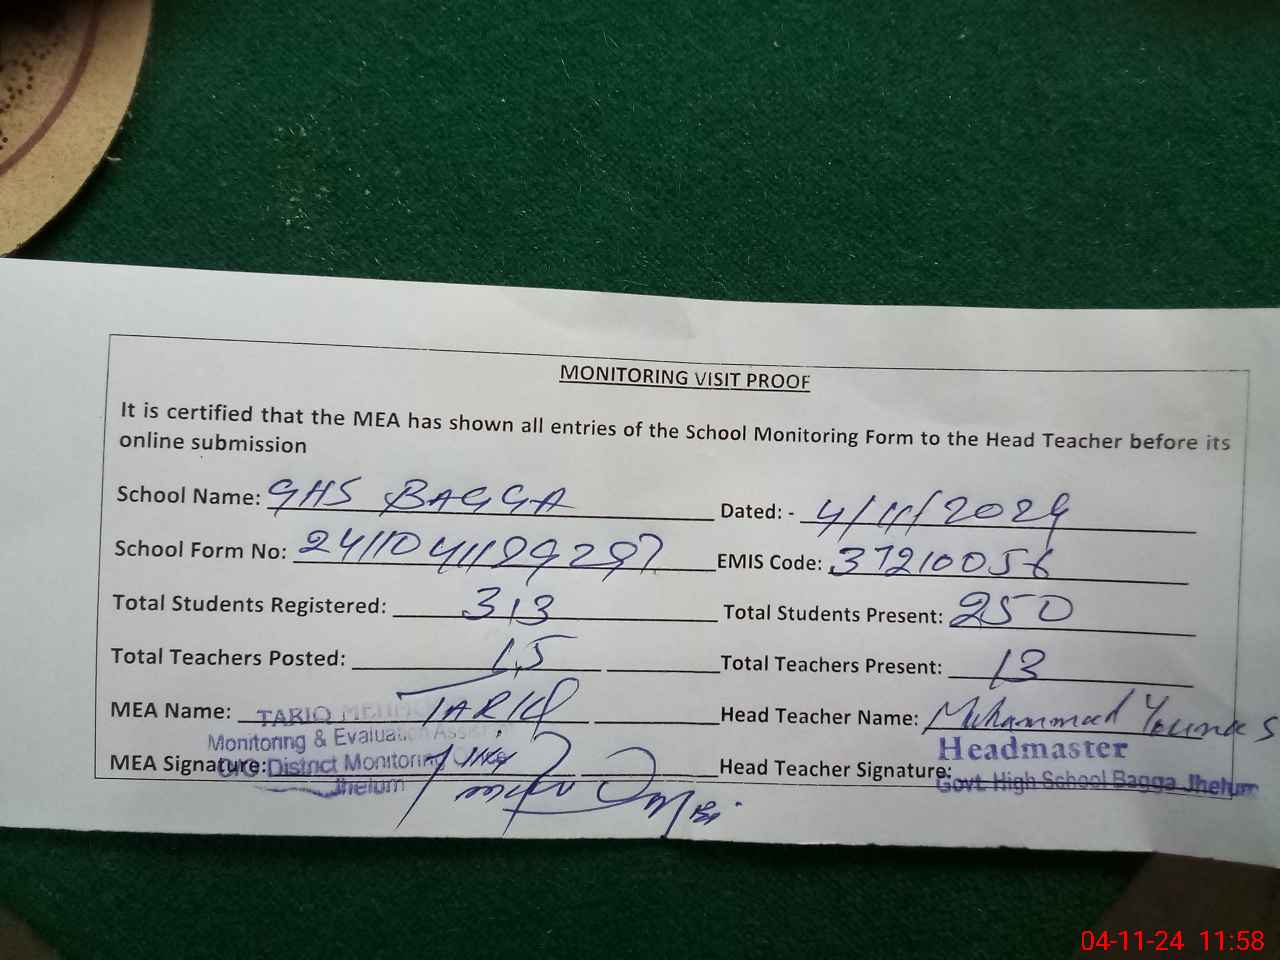 MONITORING VISIT PROOF
It is certified that the MEA has shown all entries of the School Monitoring Form to the Head Teacher before its
online submission
School Name: GHS BAGGA Dated: - 4/11/2024
School Form No: 2411041199297 EMIS Code: 37210056
Total Students Registered: 313 Total Students Present: 250
Total Teachers Posted: 15 Total Teachers Present: 13
MEA Name: TARIQ Head Teacher Name: Muhammad Younas
TARIQ MEHMOOD
Monitoring & Evaluation Assistant Headmaster
MEA Signature: Head Teacher Signature:
O/O District Monitoring Office Govt. High School Bagga Jhelum
Jhelum
04-11-24 11:58